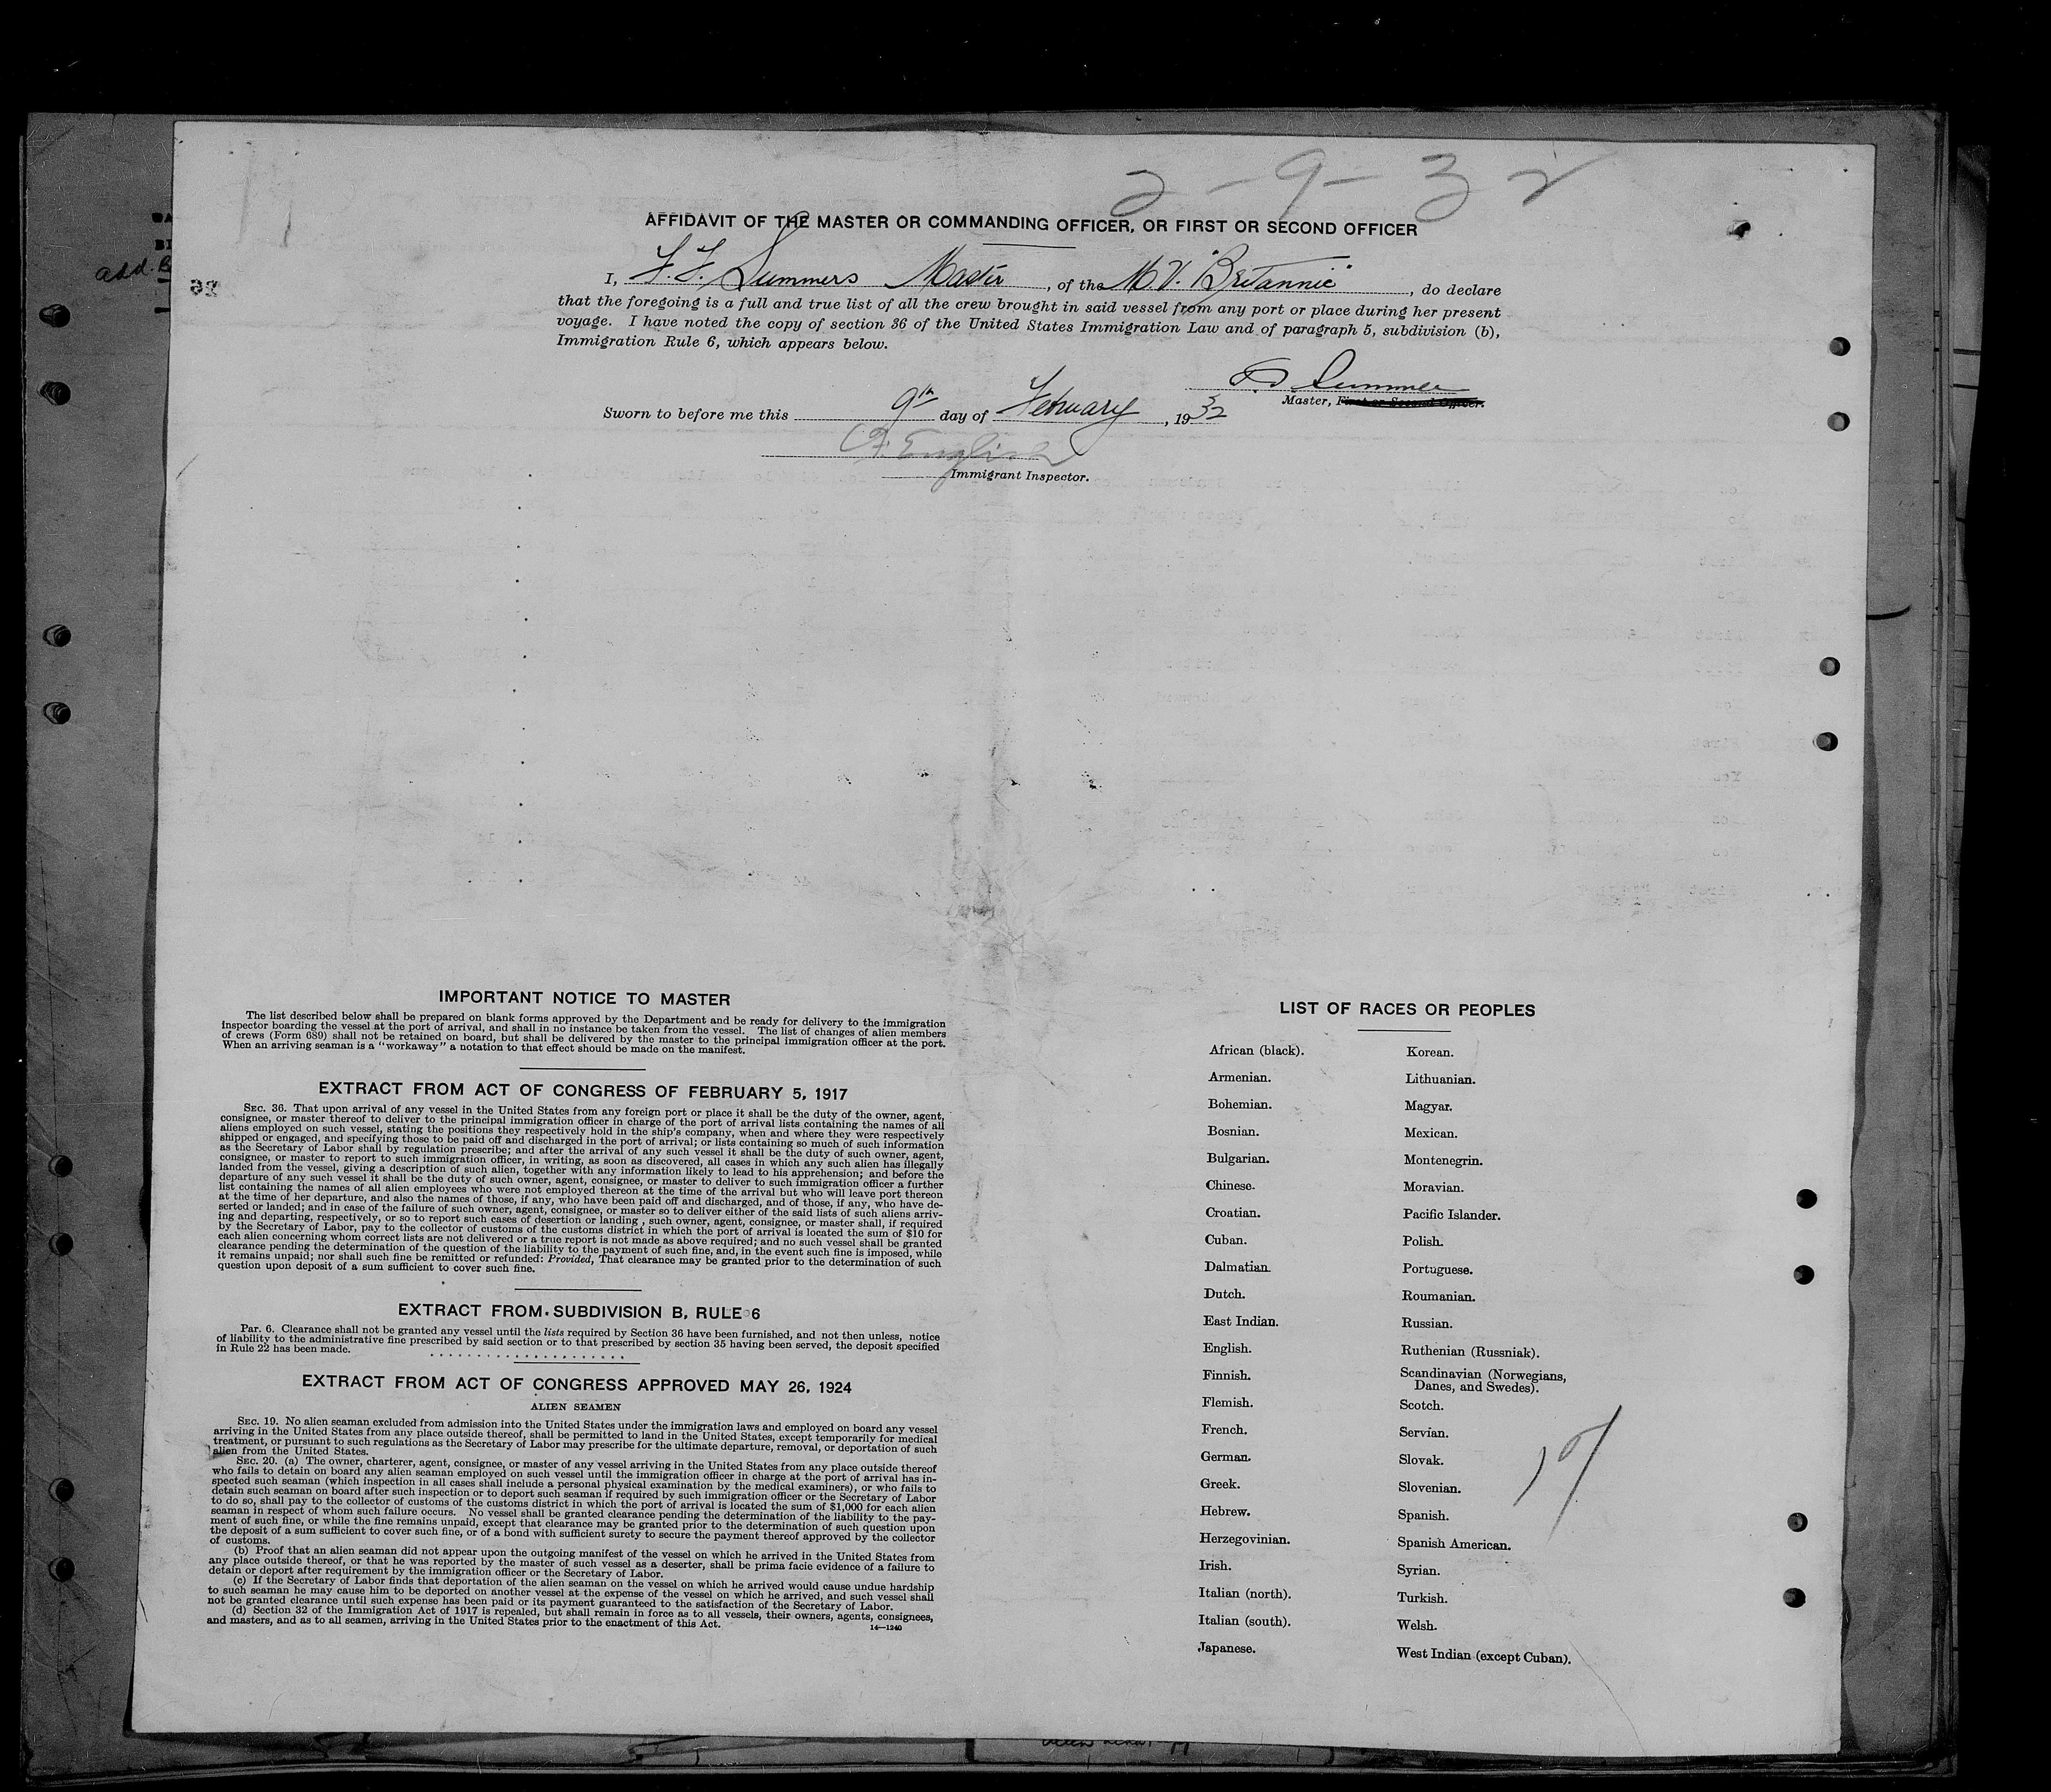 2-9-32
AFFIDAVIT OF THE MASTER OR COMMANDING OFFICER, OR FIRST OR SECOND OFFICER
I, F. F. Summers Master, of the M.V. "Britannic", do declare
that the foregoing is a full and true list of all the crew brought in said vessel from any port or place during her present
voyage. I have noted the copy of section 36 of the United States Immigration Law and of paragraph 5, subdivision (b),
Immigration Rule 6, which appears below.
Summers
Master, First or Second Officer.
Sworn to before me this 9th day of February, 1932
English
Immigrant Inspector.
IMPORTANT NOTICE TO MASTER
The list described below shall be prepared on blank forms approved by the Department and be ready for delivery to the immigration
inspector boarding the vessel at the port of arrival, and shall in no instance be taken from the vessel. The list of changes of alien members
of crews (Form 689) shall not be retained on board, but shall be delivered by the master to the principal immigration officer at the port.
When an arriving seaman is a "workaway" a notation to that effect should be made on the manifest.
EXTRACT FROM ACT OF CONGRESS OF FEBRUARY 5, 1917
SEC. 36. That upon arrival of any vessel in the United States from any foreign port or place it shall be the duty of the owner, agent,
consignee, or master thereof to deliver to the principal immigration officer in charge of the port of arrival lists containing the names of all
aliens employed on such vessel, stating the positions they respectively hold in the ship's company, when and where they were respectively
shipped or engaged, and specifying those to be paid off and discharged in the port of arrival; or lists containing so much of such information
as the Secretary of Labor shall by regulation prescribe; and after the arrival of any such vessel it shall be the duty of such owner, agent,
consignee, or master to report to such immigration officer, in writing, as soon as discovered, all cases in which any such alien has illegally
landed from the vessel, giving a description of such alien, together with any information likely to lead to his apprehension; and before the
departure of any such vessel it shall be the duty of such owner, agent, consignee, or master to deliver to such immigration officer a further
list containing the names of all alien employees who were not employed thereon at the time of the arrival but who will leave port thereon
at the time of her departure, and also the names of those, if any, who have been paid off and discharged, and of those, if any, who have de-
serted or landed; and in case of the failure of such owner, agent, consignee, or master so to deliver either of the said lists of such aliens arriv-
ing and departing, respectively, or so to report such cases of desertion or landing, such owner, agent, consignee, or master shall, if required
by the Secretary of Labor, pay to the collector of customs of the customs district in which the port of arrival is located the sum of $10 for
each alien concerning whom correct lists are not delivered or a true report is not made as above required; and no such vessel shall be granted
clearance pending the determination of the question of the liability to the payment of such fine, and, in the event such fine is imposed, while
it remains unpaid; nor shall such fine be remitted or refunded: Provided, That clearance may be granted prior to the determination of such
question upon deposit of a sum sufficient to cover such fine.
EXTRACT FROM SUBDIVISION B, RULE 6
Par. 6. Clearance shall not be granted any vessel until the lists required by Section 36 have been furnished, and not then unless, notice
of liability to the administrative fine prescribed by said section or to that prescribed by section 35 having been served, the deposit specified
in Rule 22 has been made.
EXTRACT FROM ACT OF CONGRESS APPROVED MAY 26, 1924
ALIEN SEAMEN
SEC. 19. No alien seaman excluded from admission into the United States under the immigration laws and employed on board any vessel
arriving in the United States from any place outside thereof, shall be permitted to land in the United States, except temporarily for medical
treatment, or pursuant to such regulations as the Secretary of Labor may prescribe for the ultimate departure, removal, or deportation of such
alien from the United States.
SEC. 20. (a) The owner, charterer, agent, consignee, or master of any vessel arriving in the United States from any place outside thereof
who fails to detain on board any alien seaman employed on such vessel until the immigration officer in charge at the port of arrival has in-
spected such seaman (which inspection in all cases shall include a personal physical examination by the medical examiners), or who fails to
detain such seaman on board after such inspection or to deport such seaman if required by such immigration officer or the Secretary of Labor
to do so, shall pay to the collector of customs of the customs district in which the port of arrival is located the sum of $1,000 for each alien
seaman in respect of whom such failure occurs. No vessel shall be granted clearance pending the determination of the liability to the pay-
ment of such fine, or while the fine remains unpaid, except that clearance may be granted prior to the determination of such question upon
the deposit of a sum sufficient to cover such fine, or of a bond with sufficient surety to secure the payment thereof approved by the collector
of customs.
(b) Proof that an alien seaman did not appear upon the outgoing manifest of the vessel on which he arrived in the United States from
any place outside thereof, or that he was reported by the master of such vessel as a deserter, shall be prima facie evidence of a failure to
detain or deport after requirement by the immigration officer or the Secretary of Labor.
(c) If the Secretary of Labor finds that deportation of the alien seaman on the vessel on which he arrived would cause undue hardship
to such seaman he may cause him to be deported on another vessel at the expense of the vessel on which he arrived, and such vessel shall
not be granted clearance until such expense has been paid or its payment guaranteed to the satisfaction of the Secretary of Labor.
(d) Section 32 of the Immigration Act of 1917 is repealed, but shall remain in force as to all vessels, their owners, agents, consignees,
and masters, and as to all seamen, arriving in the United States prior to the enactment of this Act.
14—1240
LIST OF RACES OR PEOPLES
African (black).
Armenian.
Bohemian.
Bosnian.
Bulgarian.
Chinese.
Croatian.
Cuban.
Dalmatian.
Dutch.
East Indian.
English.
Finnish.
Flemish.
French.
German.
Greek.
Hebrew.
Herzegovinian.
Irish.
Italian (north).
Italian (south).
Japanese.
Korean.
Lithuanian.
Magyar.
Mexican.
Montenegrin.
Moravian.
Pacific Islander.
Polish.
Portuguese.
Roumanian.
Russian.
Ruthenian (Russniak).
Scandinavian (Norwegians,
Danes, and Swedes).
Scotch.
Servian.
Slovak.
Slovenian.
Spanish.
Spanish American.
Syrian.
Turkish.
Welsh.
West Indian (except Cuban).